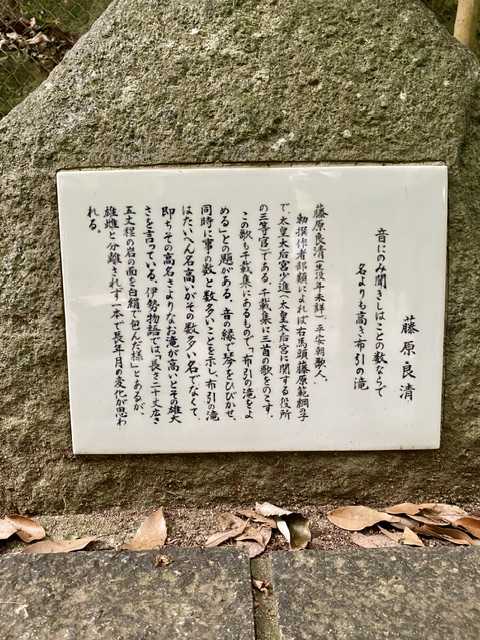 藤原良清
音にのみ聞きしはことの数ならで
名よりも高き布引の滝
藤原良清(生没年未詳)平安朝歌人、
勅撰作者部類によれば右馬頭藤原範綱の子
で、太皇太后宮少進(太皇太后宮に関する役所
の三等官)である。千載集に三首の歌をのこす。
この歌も千載集にあるもので「布引の滝をよ
める」との題がある。音の縁で琴をひびかせ、
同時に事の数と数多いことを示し、布引の滝
はたいへん名高いがその数多い名でなくて、
即ちその高名さよりなお滝が高いとその雄大
さを言っている。伊勢物語では「長さ二十丈広さ
五丈程の岩の面を白絹で包んだ様」とあるが、
雄雌と分離されず一本で長年月の変化が思わ
れる。